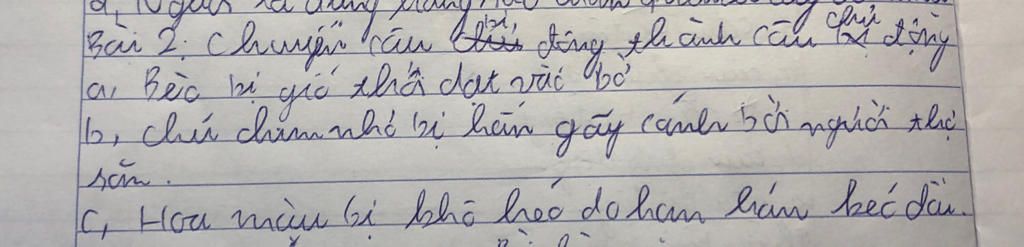 Bài 2: Chuyển câu bị động thành câu chủ động
a, Bèo bị gió thổi dạt vào bờ
b, chú chim nhỏ bị bắn gãy cánh bởi người thợ
săn.
c, Hoa màu bị khô héo do hạn hán kéo dài.